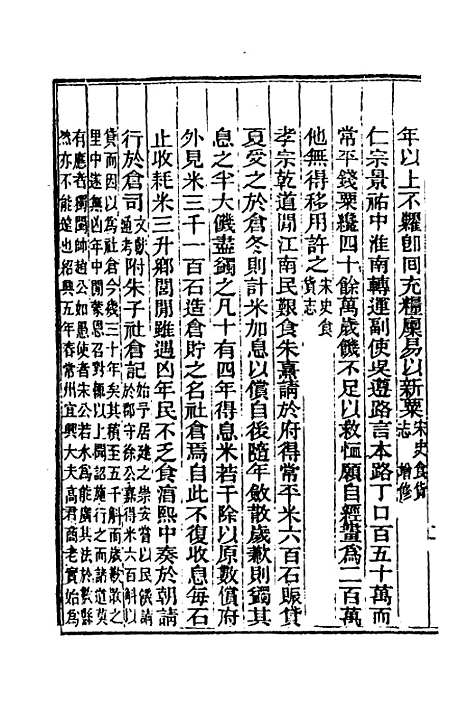 年以上不糶卽囘充糧廩易以新粟宋史食貨志增修
仁宗景祐中淮南轉運副使吳遵路言本路丁口百五十萬而
常平錢粟纔四十餘萬歲饑不足以救恤願自經畫爲二百萬
他無得移用許之宋史食貨志
孝宗乾道閒江南民艱食朱熹請於府得常平米六百石賑貸
夏受之於倉冬則計米加息以償自後隨年斂散歲歉則蠲其
息之半大饑盡蠲之凡十有四年得息米若干除以原數償府
外見米三千一百石造倉貯之名社倉焉自此不復收息每石
止收耗米三升鄉閭閒雖遇凶年民不乏食淳熙中奏於朝請
行於倉司文獻通考附朱子社倉記始予居建之崇安嘗以民饑請於郡守徐公嘉得米六百斛以
貸而因以爲社倉今幾三十年矣其積至五千斛而歲斂散之
里中遂無凶年中閒蒙恩召對輒以上聞詔施行之而諸道莫
有應者獨閩帥趙公如愚使者朱公若水爲能廣其法於數縣
然亦不能遠也紹興五年春常州宜興大夫高君商老實始爲